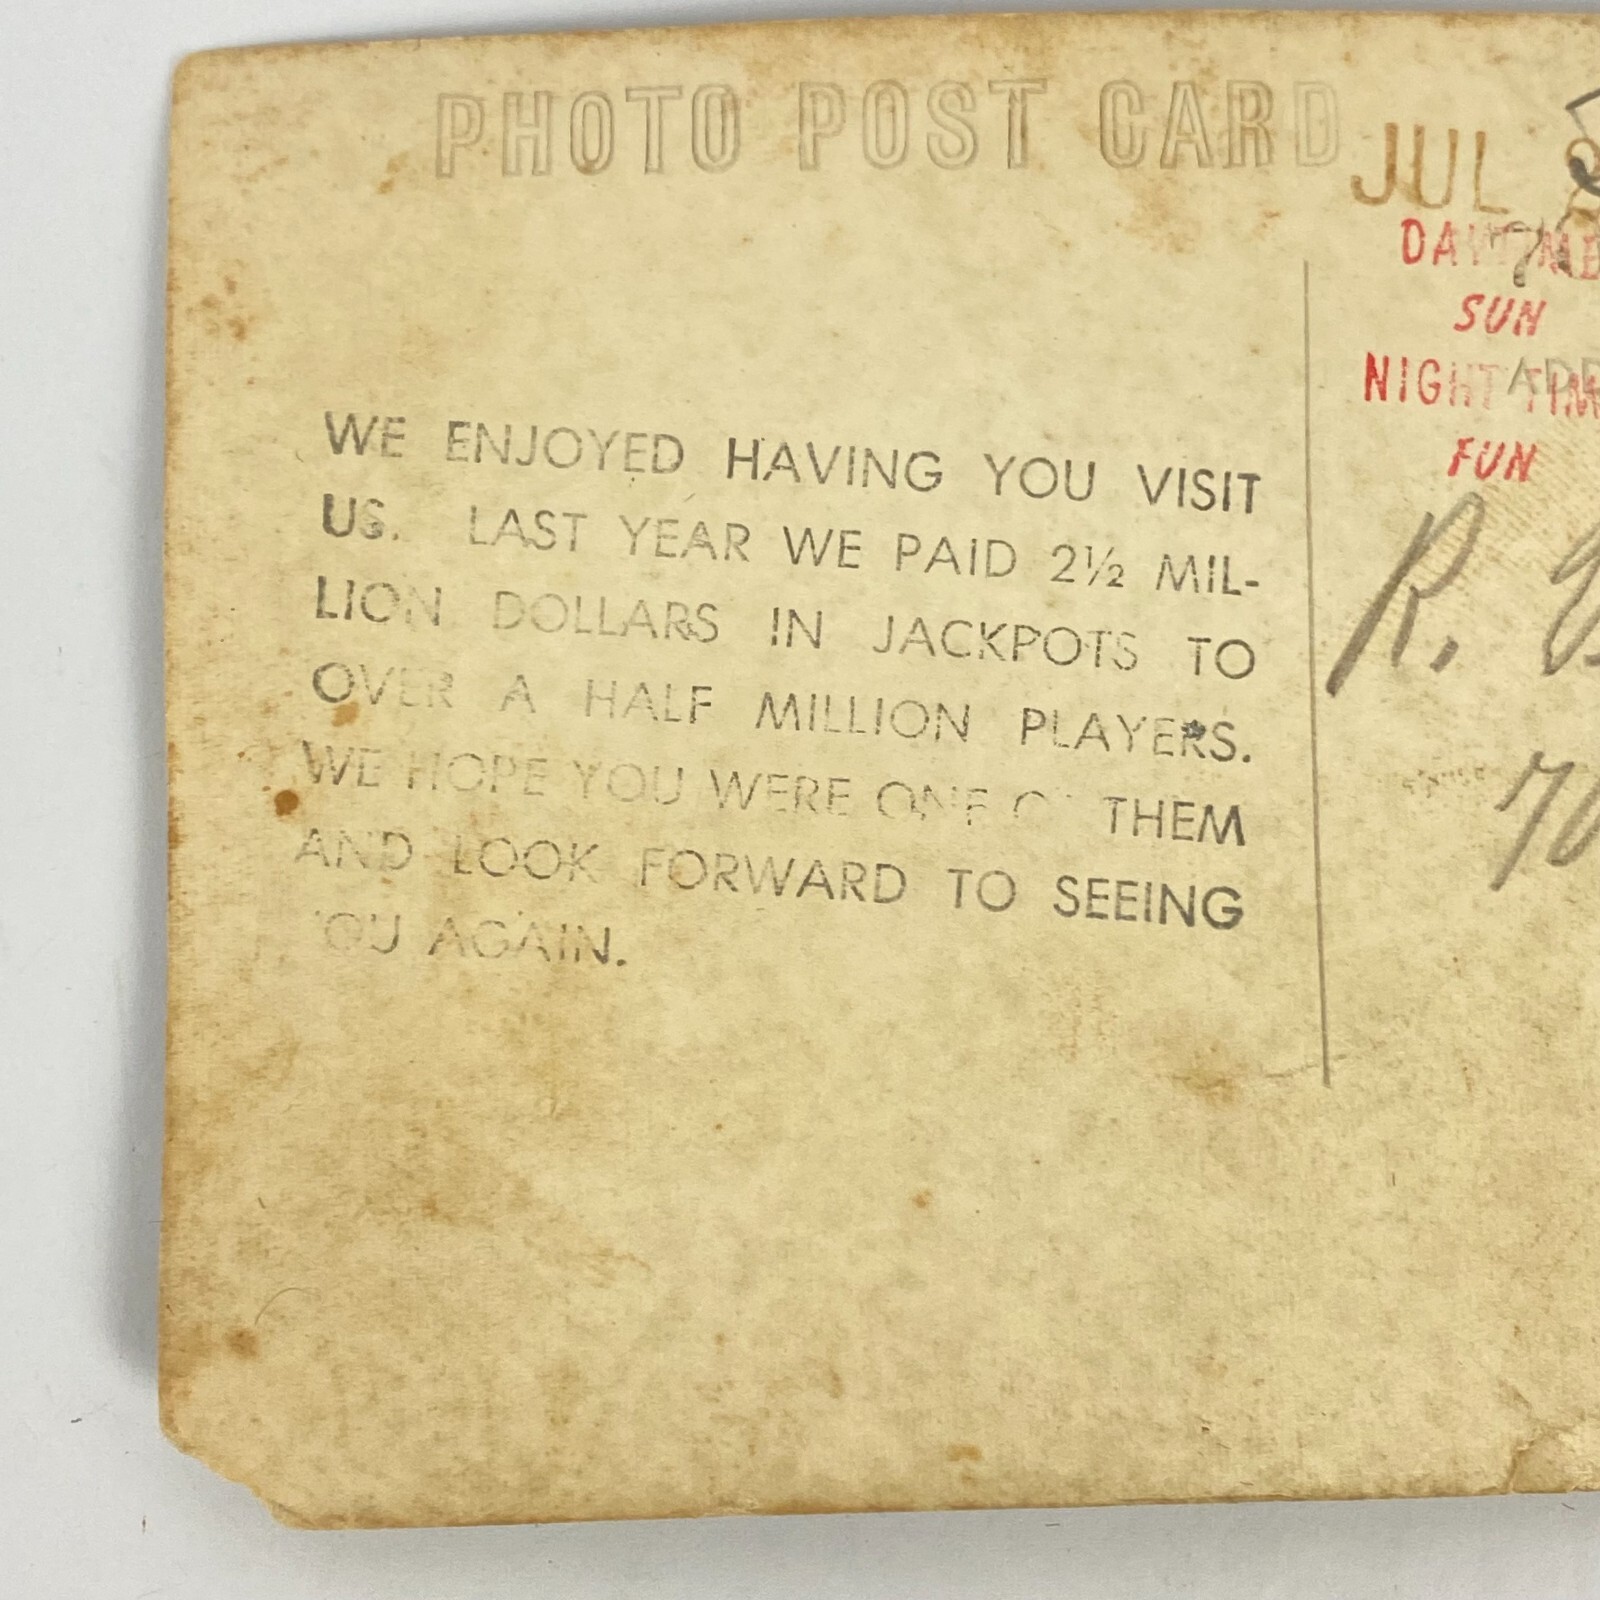 PHOTO POST CARD
JUL
DAYTIME
SUN
NIGHT TIM
FUN
WE ENJOYED HAVING YOU VISIT
US. LAST YEAR WE PAID 2½ MIL-
LION DOLLARS IN JACKPOTS TO
OVER A HALF MILLION PLAYERS.
WE HOPE YOU WERE ONE OF THEM
AND LOOK FORWARD TO SEEING
YOU AGAIN.
R.
70